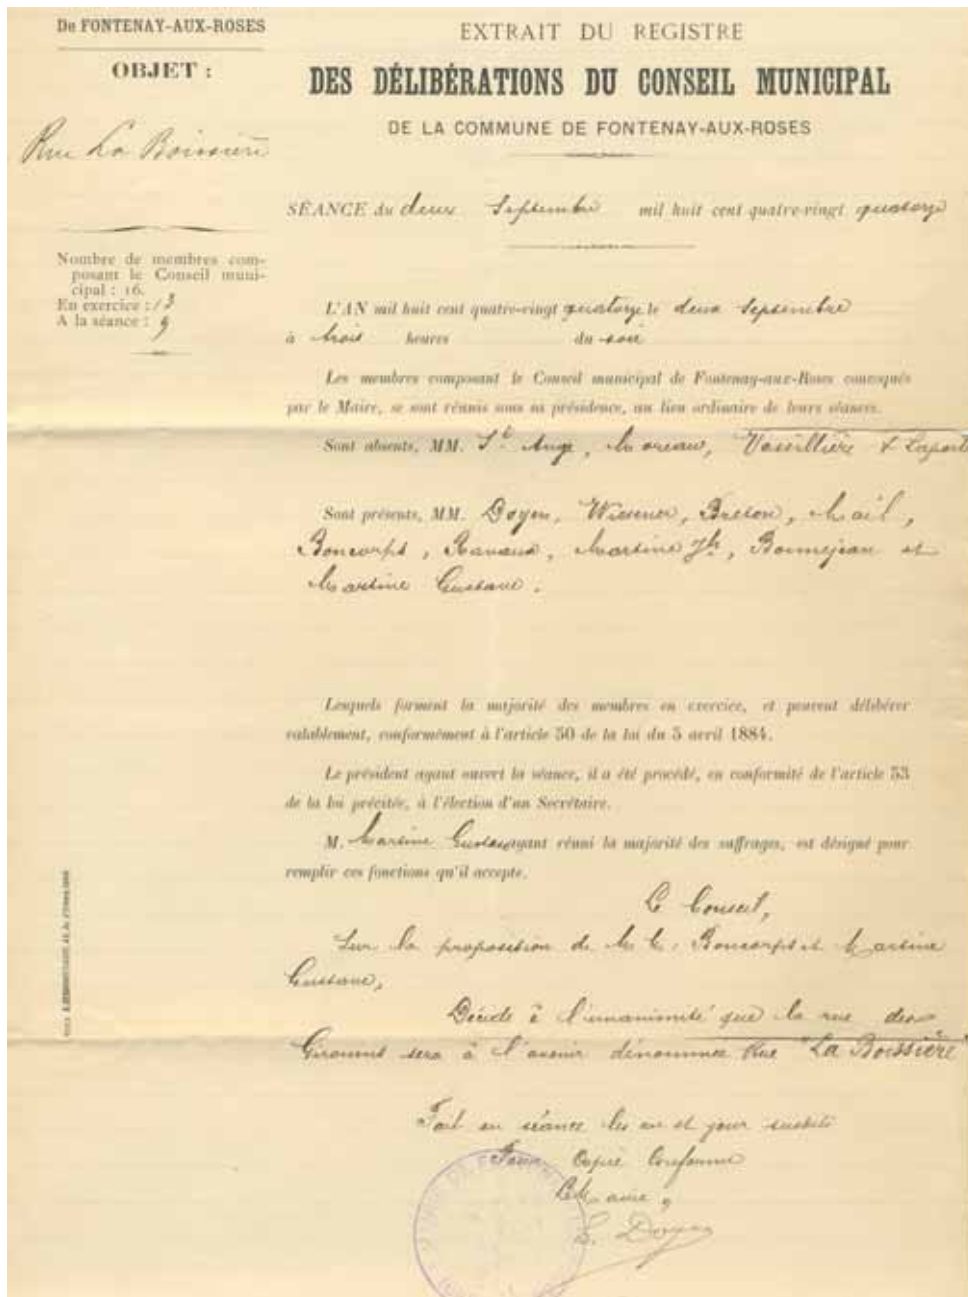 De FONTENAY-AUX-ROSES
OBJET :
Rue La Boissière
Nombre de membres com-
posant le Conseil muni-
cipal : 16.
En exercice : 13
A la séance : 9
EXTRAIT DU REGISTRE
DES DÉLIBÉRATIONS DU CONSEIL MUNICIPAL
DE LA COMMUNE DE FONTENAY-AUX-ROSES
SÉANCE du deux Septembre mil huit cent quatre-vingt quatorze
L'AN mil huit cent quatre-vingt quatorze le deux Septembre
à trois heures du soir
Les membres composant le Conseil municipal de Fontenay-aux-Roses convoqués
par le Maire, se sont réunis sous sa présidence, au lieu ordinaire de leurs séances.
Sont absents, MM. St Ange, Moreau, Vassillière & Laporte
Sont présents, MM. Doyen, Wiesener, Breton, Mail,
Boncorps, Ravaux, Martine Jh, Bonnejean et
Martine Gustave.
Lesquels forment la majorité des membres en exercice, et peuvent délibérer
valablement, conformément à l'article 50 de la loi du 5 avril 1884.
Le président ayant ouvert la séance, il a été procédé, en conformité de l'article 53
de la loi précitée, à l'élection d'un Secrétaire.
M. Martine Gustave ayant réuni la majorité des suffrages, est désigné pour
remplir ces fonctions qu'il accepte.
Le Conseil,
Sur la proposition de M.M. Boncorps et Martine
Gustave,
Décide à l'unanimité que la rue des
sera à l'avenir dénommée Rue "La Boissière"
Fait en séance les an et jour susdits
Pour Copie Conforme
Le Maire,
E. Doyen